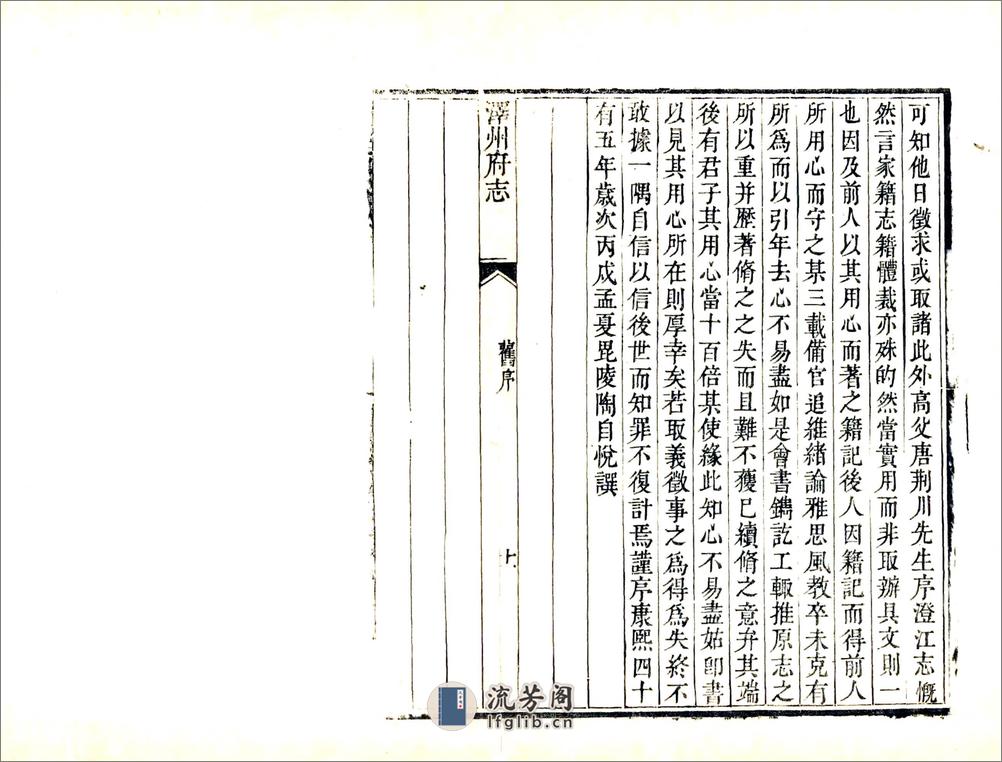 可知他日徵求或取諸此外高父唐荆川先生序澄江志慨
然言家籍志籍體裁亦殊的然當實用而非取辦具文則一
也因及前人以其用心而著之籍記後人因籍記而得前人
所用心而守之某三載備官追維緒論雅思風教卒未克有
所爲而以引年去心不易盡如是會書鐫訖工輙推原志之
所以重并歷著脩之之失而且難不獲已續脩之意弁其端
後有君子其用心當十百倍某使緣此知心不易盡姑卽書
以見其用心所在則厚幸矣若取義徵事之爲得爲失終不
敢據一隅自信以信後世而知罪不復計焉謹序康熙四十
有五年歲次丙戌孟夏毘陵陶自悅譔
澤州府志
舊序
流芳阁
lfglib.cn